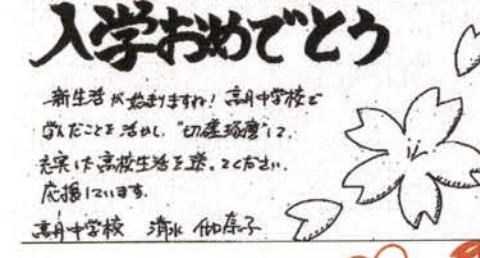 入学おめでとう
新生活が始まりますね！高月中学校で
学んだことを活かし、"切磋琢磨"して、
充実した高校生活を送ってください。
応援しています。
高月中学校 清水